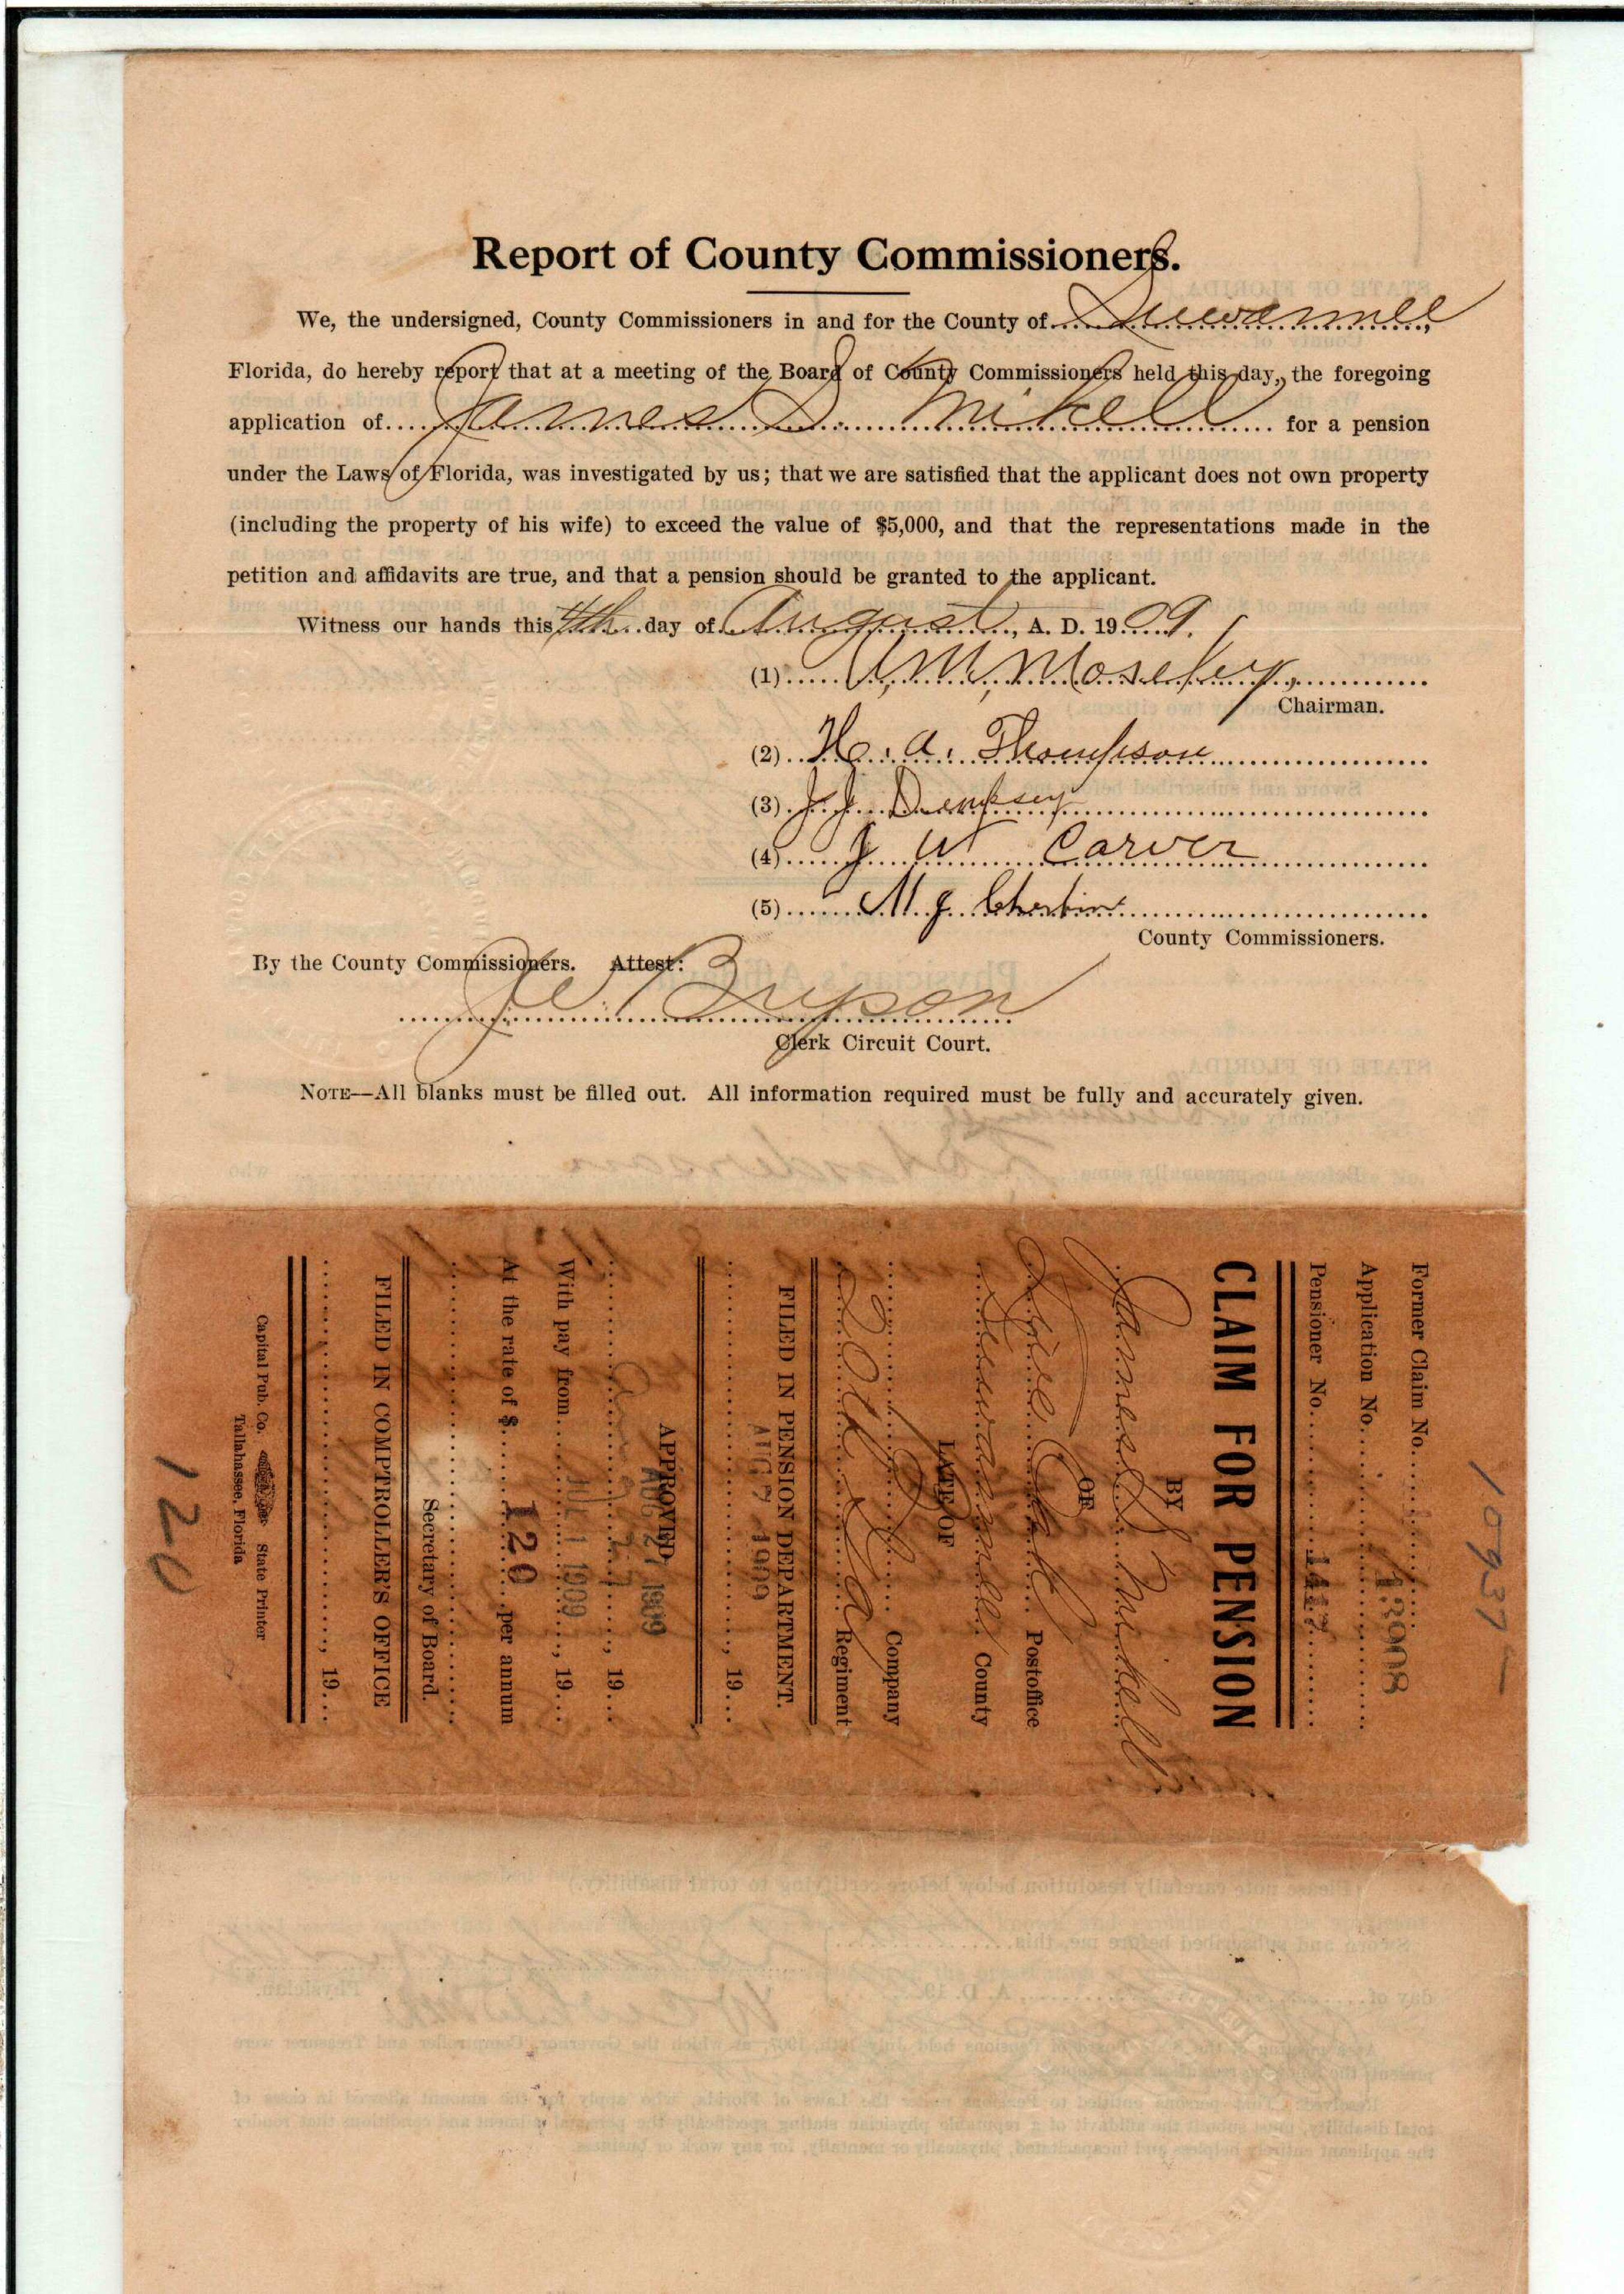 Report of County Commissioners.
We, the undersigned, County Commissioners in and for the County of Suwannee,
Florida, do hereby report that at a meeting of the Board of County Commissioners held this day, the foregoing
application of James D. Mikell for a pension
under the Laws of Florida, was investigated by us; that we are satisfied that the applicant does not own property
(including the property of his wife) to exceed the value of $5,000, and that the representations made in the
petition and affidavits are true, and that a pension should be granted to the applicant.
Witness our hands this 4th day of August, A. D. 1909.
(1) Moseley,
Chairman.
(2) H. A. Thompson
(3) J. J. Dempsey
(4) J W Carver
(5) M. J.
County Commissioners.
By the County Commissioners. Attest:
Bryson
Clerk Circuit Court.
NOTE—All blanks must be filled out. All information required must be fully and accurately given.
10937—
Former Claim No.
Application No. 13908
Pensioner No.
CLAIM FOR PENSION
BY
James D Mikell
OF
Live Oak Postoffice
Suwannee County
LATE OF
Company
20th Ga Regiment
FILED IN PENSION DEPARTMENT.
AUG 7 1909
, 19
APPROVED
AUG 27 1909
, 19
With pay from JUL 1 1909, 19
At the rate of $ 120 per annum
Secretary of Board.
FILED IN COMPTROLLER'S OFFICE
, 19
Capital Pub. Co. State Printer
Tallahassee, Florida
120